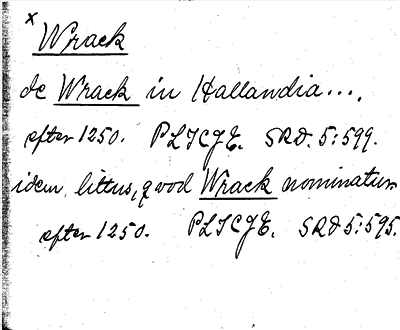 x
Wrack
de Wrack in Hallandia....
efter 1250. PLTCGE. SRD. 5:599.
idem littus, qvod Wrack nominatur
efter 1250. PLTCGE. SRD 5:595.